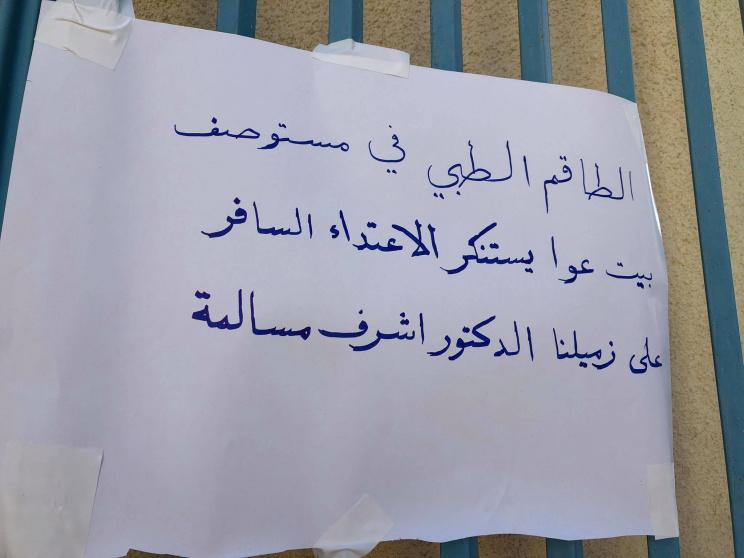 الطاقم الطبي في مستوصف
بيت عوا يستنكر الاعتداء السافر
على زميلنا الدكتور اشرف مسالمة